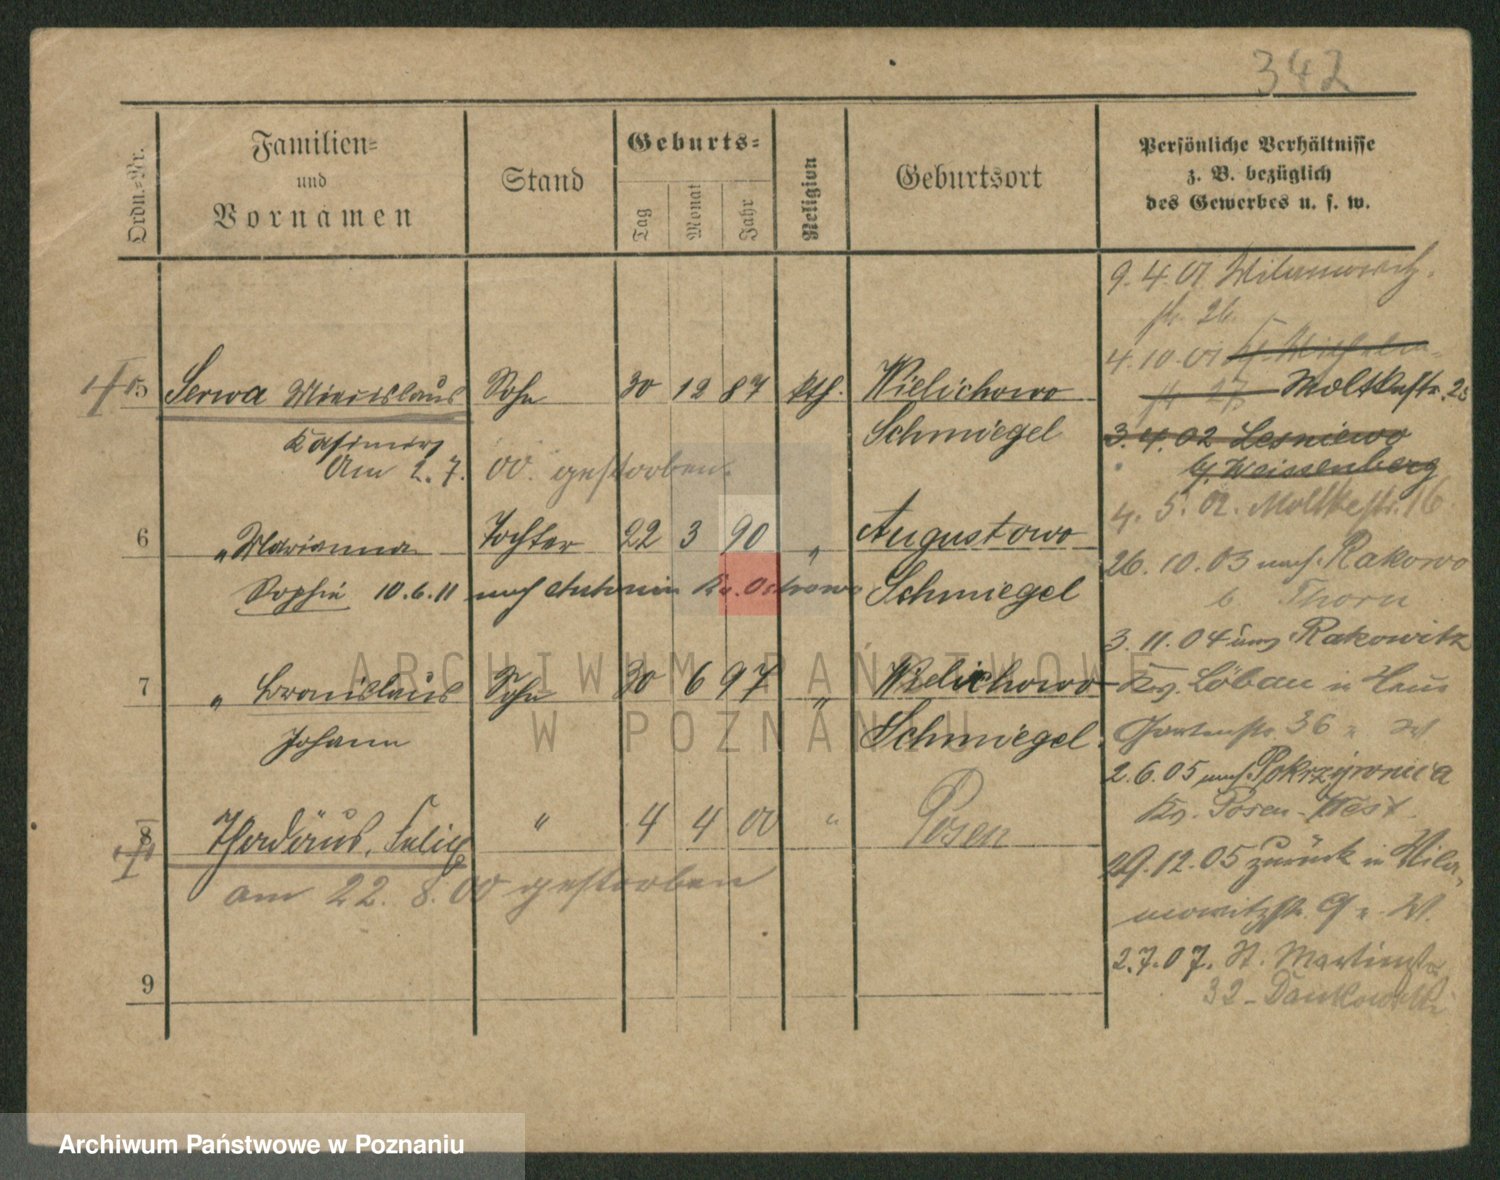 342
Ordn.-Nr.
Familien-
und
Vornamen
Stand
Geburts-
Tag
Monat
Jahr
Religion
Geburtsort
Persönliche Verhältnisse
z. B. bezüglich
des Gewerbes u. s. w.
5 Serwa Miecislaus Sohn 30 12 87 kth. Wielichowo
Kasimir Schmiegel
Am 2.7. 00. gestorben.
6 " Marianna Tochter 22 3 90 " Augustowo
Sophie 10.6.11 nach Antonin Kr. Ostrowo Schmiegel
7 " Bronislaus Sohn 30 6 97 " Wielichowo
Johann Schmiegel.
8 Thadäus, Felix " 4 4 00 " Posen
am 22. 8. 00 gestorben
9
9.4.01 Wilamowitz-
str. 26.
4.10.01
str 27 Moltkestr. 23
3.4.02 Lesniewo
b/ Weissenberg
4. 5. 02. Moltkestr. 16
26. 10. 03 nach Rakowo
b Thorn
3. 11. 04 aus Rakowitz
Kr. Löbau in Haus
Gartenstr. 36
2.6.05 nach Pokrzywnica
Kr. Posen-West.
29.12.05 zurück in Wila-
mowitzstr. 9 W.
2.7.07. St. Martinstr
32 - Dankowski
ARCHIWUM PAŃSTWOWE
W POZNANIU
Archiwum Państwowe w Poznaniu